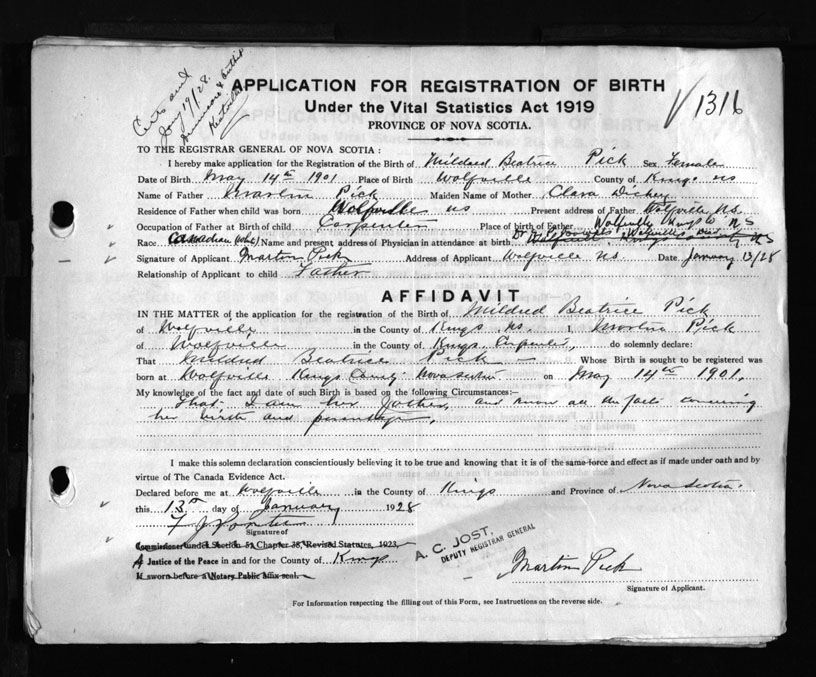 Certs and
Jany 19/28.
Kentville
APPLICATION FOR REGISTRATION OF BIRTH
Under the Vital Statistics Act 1919
PROVINCE OF NOVA SCOTIA.
√1316
TO THE REGISTRAR GENERAL OF NOVA SCOTIA :
I hereby make application for the Registration of the Birth of Mildred Beatrice Pick Sex Female
Date of Birth May 14th 1901 Place of Birth Wolfville County of Kings NS
Name of Father Martin Pick Maiden Name of Mother Clara Dickey
Residence of Father when child was born Wolfville NS Present address of Father Wolfville N.S.
Occupation of Father at Birth of child Carpenter Place of birth of Father Wolfville Kings Co NS
Race Canadian Name and present address of Physician in attendance at birth Dr Wolfville
Signature of Applicant Marton Pick Address of Applicant Wolfville N.S. Date January 13/28
Relationship of Applicant to child Father
AFFIDAVIT
IN THE MATTER of the application for the registration of the Birth of Mildred Beatrice Pick
of Wolfville in the County of Kings NS. I, Martin Pick
of Wolfville in the County of Kings, Carpenter, do solemnly declare:
That Mildred Beatrice Pick — Whose Birth is sought to be registered was
born at Wolfville Kings County Nova Scotia on May 14th 1901.
My knowledge of the fact and date of such Birth is based on the following Circumstances:—
That I am her Father, and know all the facts concerning
her birth and parentage.
I make this solemn declaration conscientiously believing it to be true and knowing that it is of the same force and effect as if made under oath and by
virtue of The Canada Evidence Act.
Declared before me at Wolfville in the County of Kings and Province of Nova Scotia.
this 13th day of January 1928
Signature of
Commissioner under Section 51, Chapter 38, Revised Statutes, 1923,
A Justice of the Peace in and for the County of Kings
If sworn before a Notary Public affix seal.
A. C. JOST,
DEPUTY REGISTRAR GENERAL
Marton Pick
Signature of Applicant.
For Information respecting the filling out of this Form, see Instructions on the reverse side.